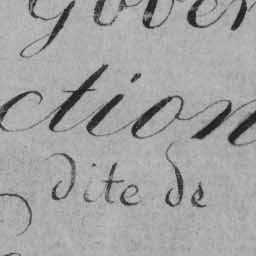 Gover
ction
dite de